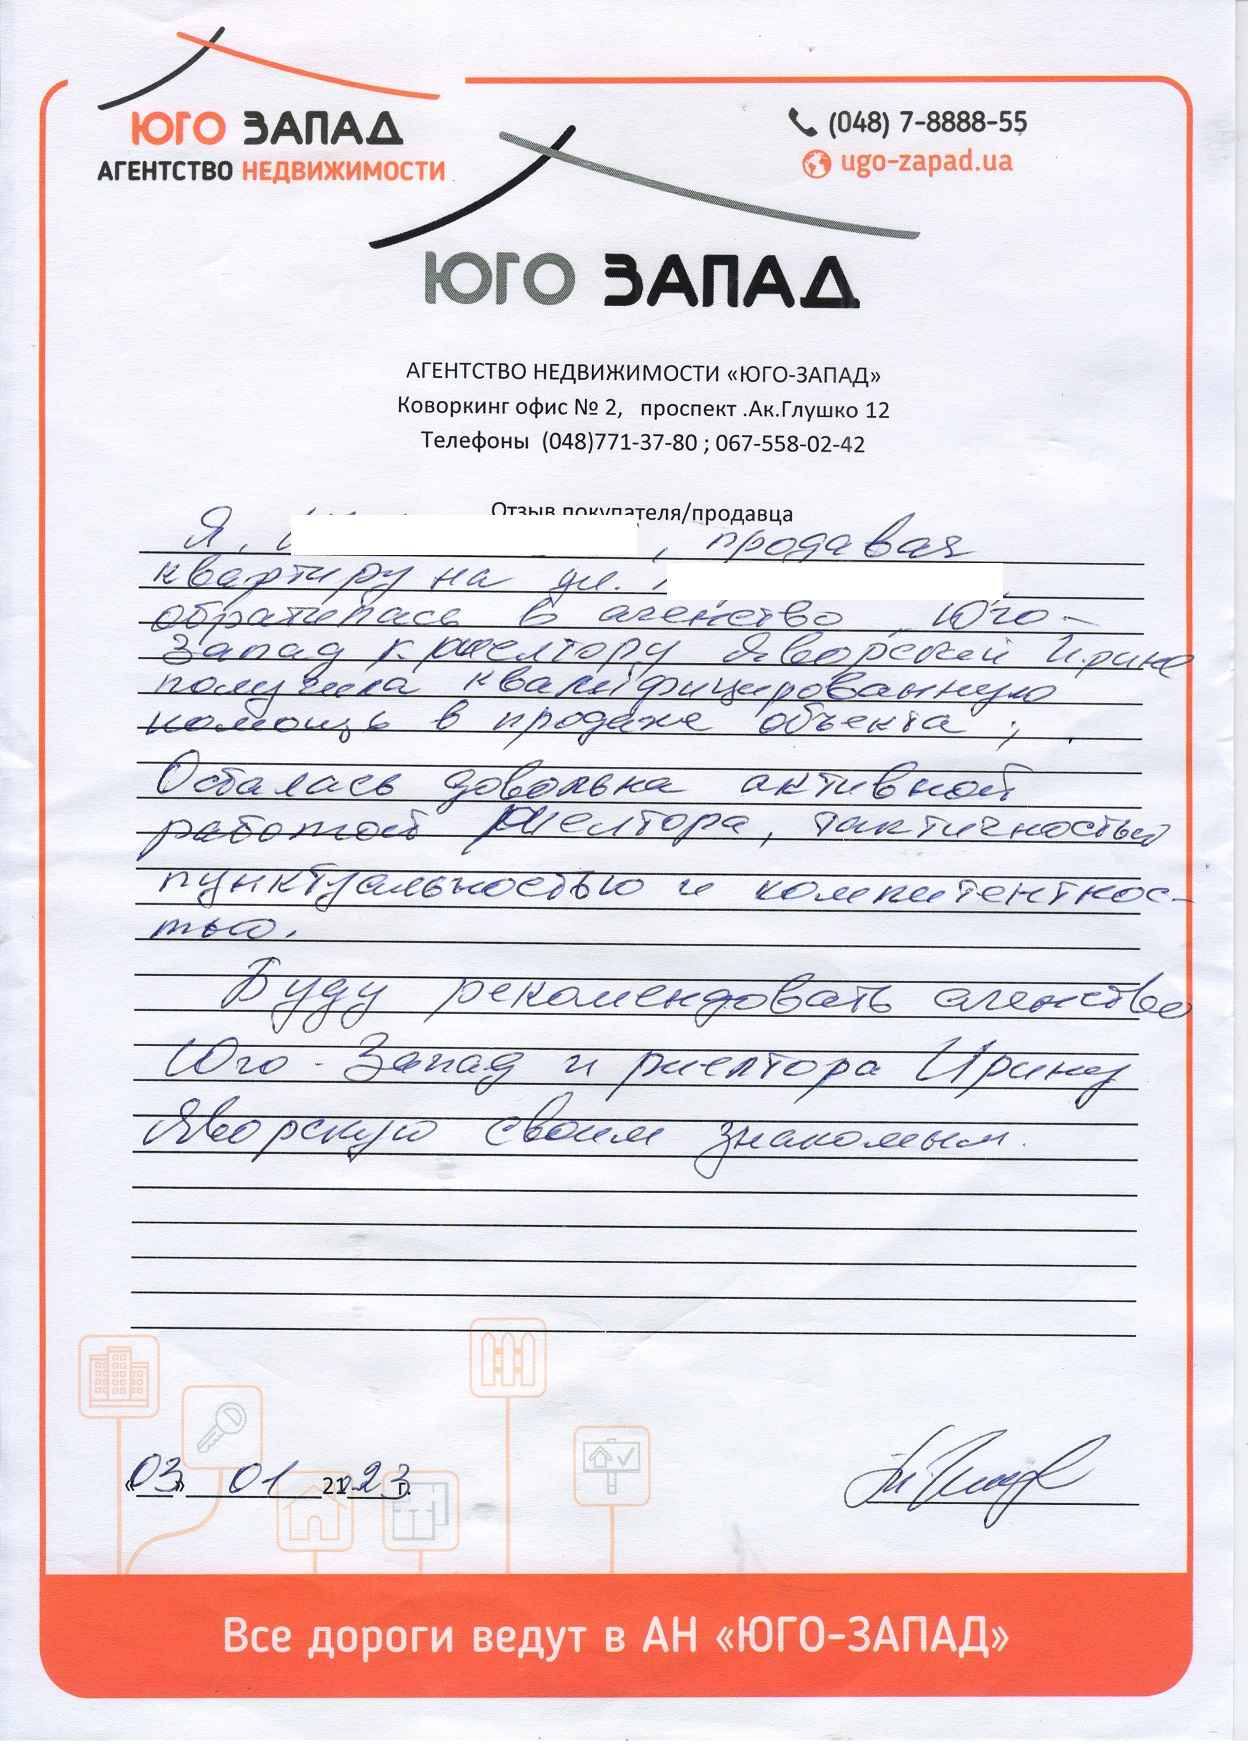 ЮГО ЗАПАД
АГЕНТСТВО НЕДВИЖИМОСТИ
(048) 7-8888-55
ugo-zapad.ua
ЮГО ЗАПАД
АГЕНТСТВО НЕДВИЖИМОСТИ «ЮГО-ЗАПАД»
Коворкинг офис № 2, проспект .Ак.Глушко 12
Телефоны (048)771-37-80 ; 067-558-02-42
Отзыв покупателя/продавца
Я, , продавая
квартиру на ул.
обратилась в агенство Юго-
Запад к риелтору Яворской Ирине
получила квалифицированную
помощь в продаже объекта;
Осталась довольна активной
работой риелтора, тактичностью
пунктуальностью и компитентнос-
тью.
Буду рекомендовать агенство
Юго-Запад и риелтора Ирину
Яворскую своим знакомым.
«03» 01 2023 г.
Все дороги ведут в АН «ЮГО-ЗАПАД»